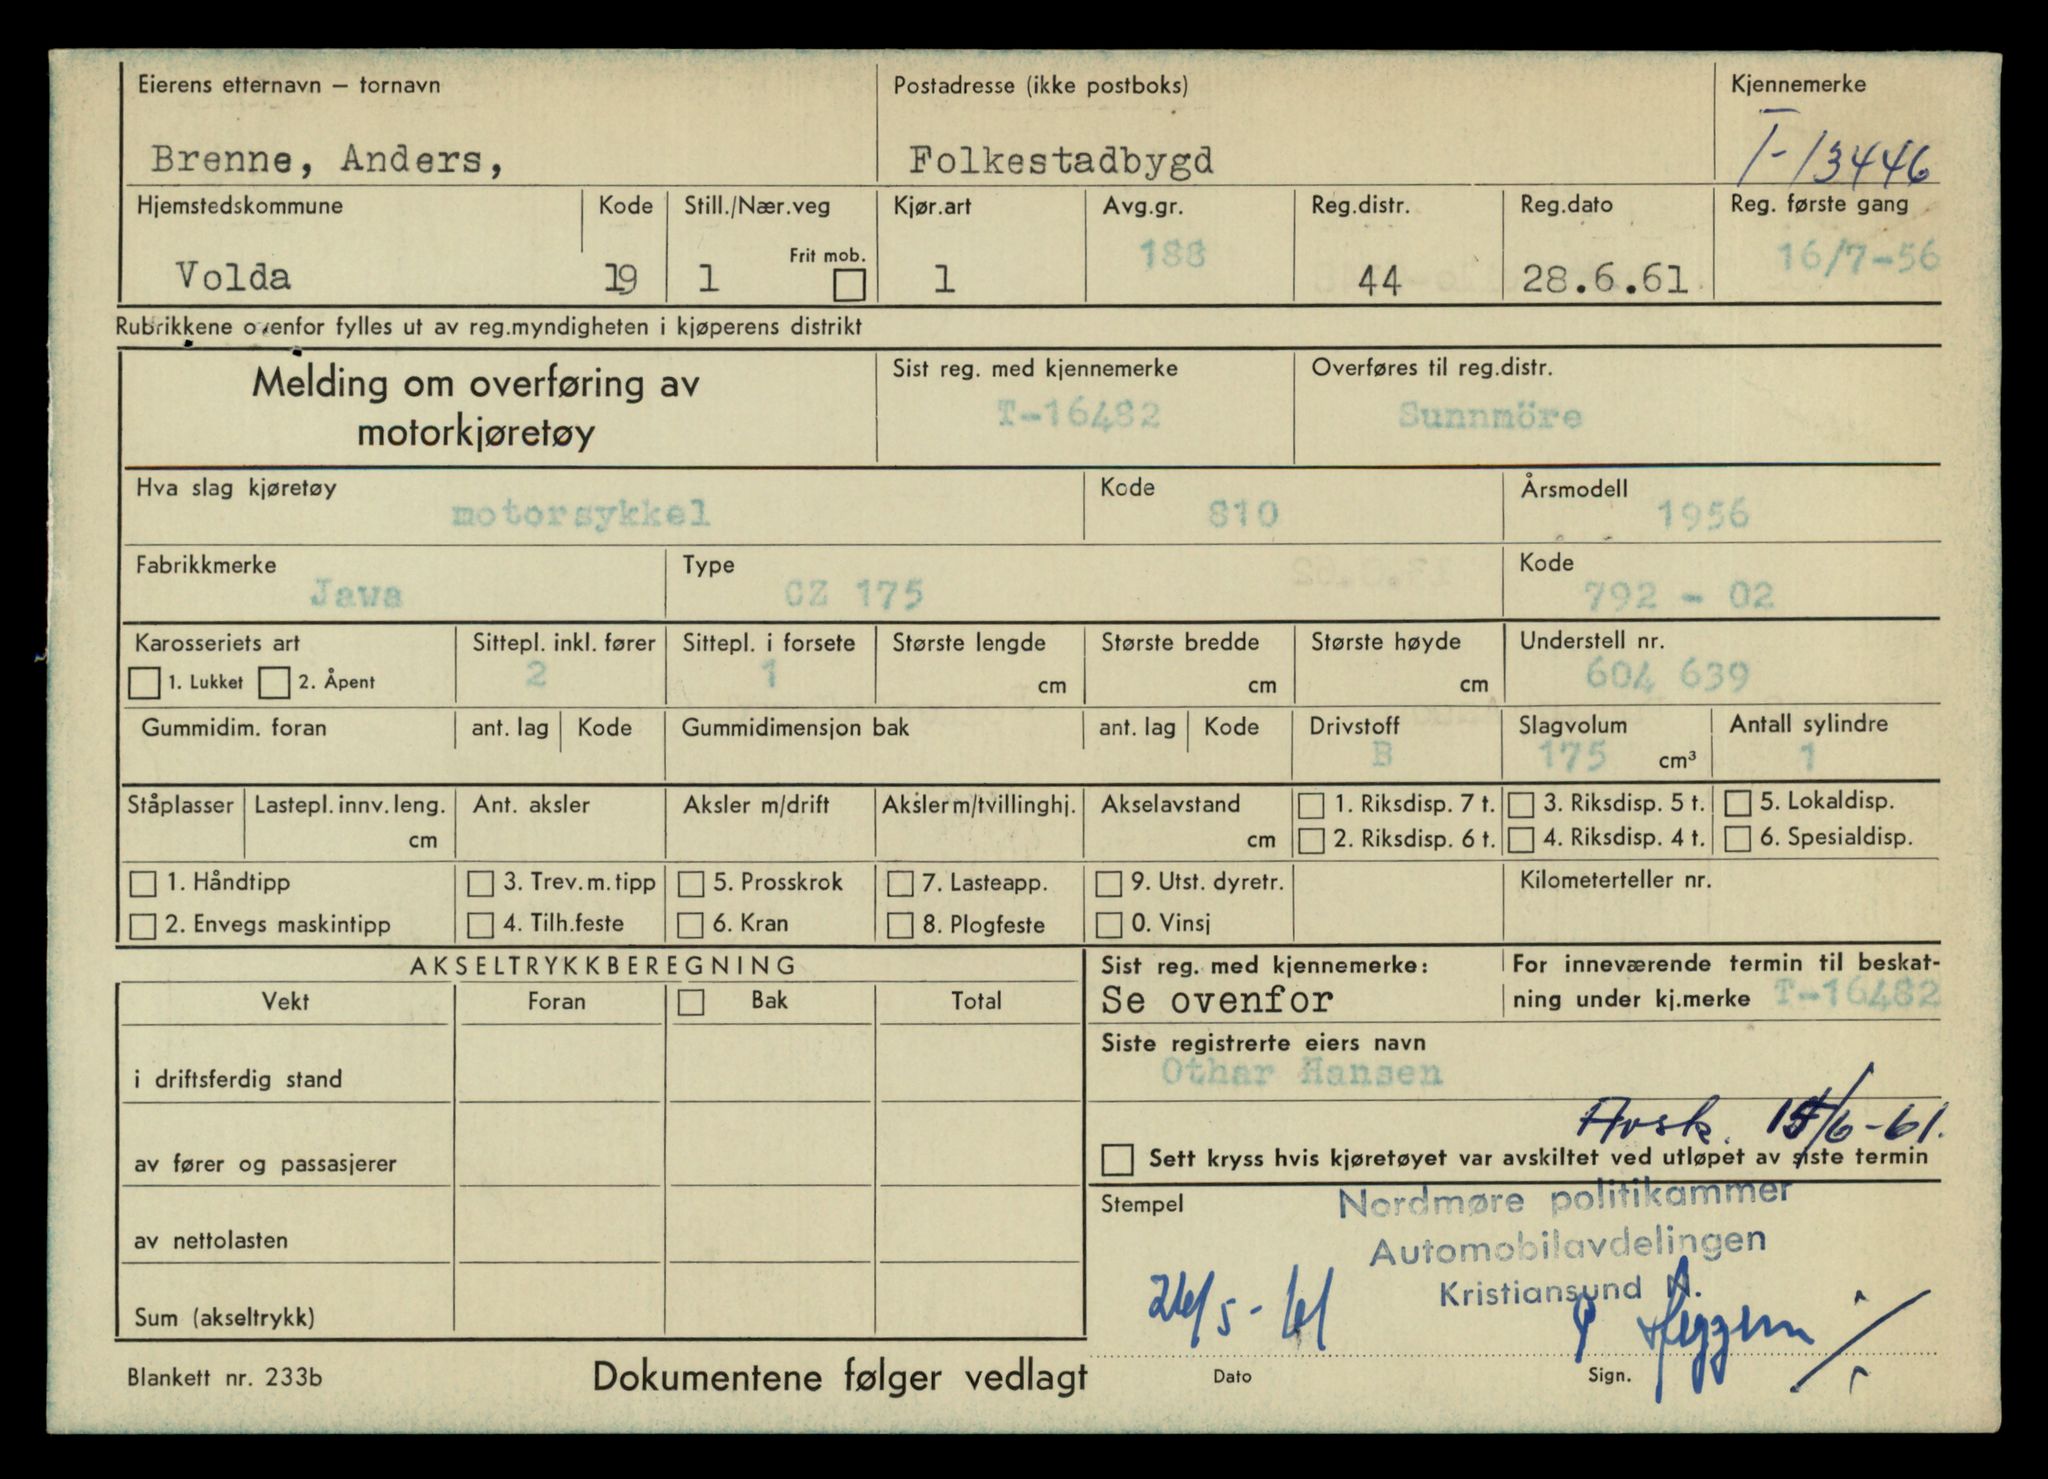 Eierens etternavn – tornavn Postadresse (ikke postboks) Kjennemerke
Brenne, Anders, Folkestadbygd T-13446
Hjemstedskommune Kode Still./Nær.veg Kjør.art Avg.gr. Reg.distr. Reg.dato Reg. første gang
Frit mob.
Volda 19 1 1 188 44 28.6.61 16/7-56
Rubrikkene ovenfor fylles ut av reg.myndigheten i kjøperens distrikt
Melding om overføring av motorkjøretøy
Sist reg. med kjennemerke Overføres til reg.distr.
T-16482 Sunnmöre
Hva slag kjøretøy Kode Årsmodell
motorsykkel 810 1956
Fabrikkmerke Type Kode
Jawa CZ 175 792 - 02
Karosseriets art Sittepl. inkl. fører Sittepl. i forsete Største lengde Største bredde Største høyde Understell nr.
1. Lukket 2. Åpent 2 1 cm cm cm 604 639
Gummidim. foran ant. lag Kode Gummidimensjon bak ant. lag Kode Drivstoff Slagvolum Antall sylindre
B 175 cm³ 1
Ståplasser Lastepl. innv. leng. Ant. aksler Aksler m/drift Aksler m/tvillinghj. Akselavstand 1. Riksdisp. 7 t. 3. Riksdisp. 5 t. 5. Lokaldisp.
cm cm 2. Riksdisp. 6 t. 4. Riksdisp. 4 t. 6. Spesialdisp.
1. Håndtipp 3. Trev. m. tipp 5. Prosskrok 7. Lasteapp. 9. Utst. dyretr. Kilometerteller nr.
2. Envegs maskintipp 4. Tilh.feste 6. Kran 8. Plogfeste 0. Vinsj
AKSELTRYKKBEREGNING Sist reg. med kjennemerke: For inneværende termin til beskat-
Vekt Foran Bak Total Se ovenfor ning under kj.merke T-16482
Siste registrerte eiers navn
i driftsferdig stand Othar Hansen
Avsk. 15/6-61.
av fører og passasjerer Sett kryss hvis kjøretøyet var avskiltet ved utløpet av siste termin
Stempel Nordmøre politikammer
av nettolasten Automobilavdelingen
Kristiansund N.
Sum (akseltrykk) 26/5-61
Blankett nr. 233b Dokumentene følger vedlagt Dato Sign.